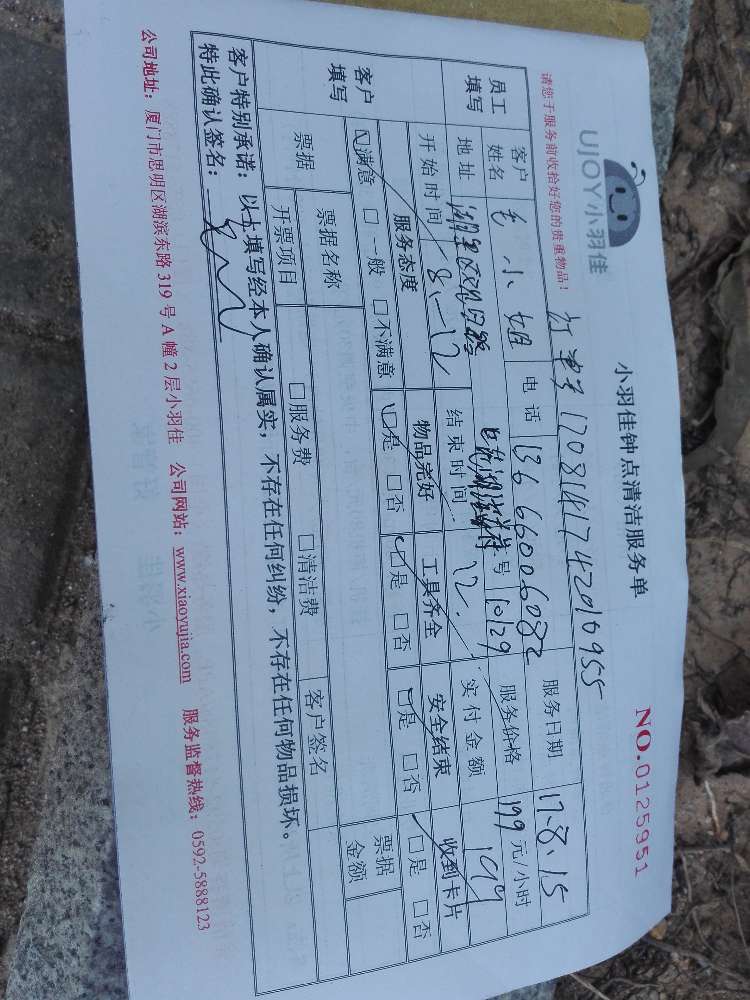 UJOY小羽佳
小羽佳钟点清洁服务单
NO.0125951
请您于服务前收拾好您的贵重物品！
订单号 1708141742010955
员工填写
客户姓名 毛小姐 电话 13666006082 服务日期 17.8.15
地址 湖里区 号 1029 服务价格 199 元/小时
开始时间 8-12 结束时间 12. 实付金额 199
客户填写
服务态度 物品完好 工具齐全 安全结束 收到卡片
☑满意 □一般 □不满意 ☑是 □否 ☑是 □否 ☑是 □否 ☑是 □否
票据 票据名称 客户签名 票据金额
开票项目 □服务费 □清洁费
客户特别承诺：以上填写经本人确认属实，不存在任何纠纷，不存在任何物品损坏。
特此确认签名：
公司地址：厦门市思明区湖滨东路 319 号 A 幢 2 层小羽佳 公司网站：www.xiaoyujia.com 服务监督热线：0592-5888123